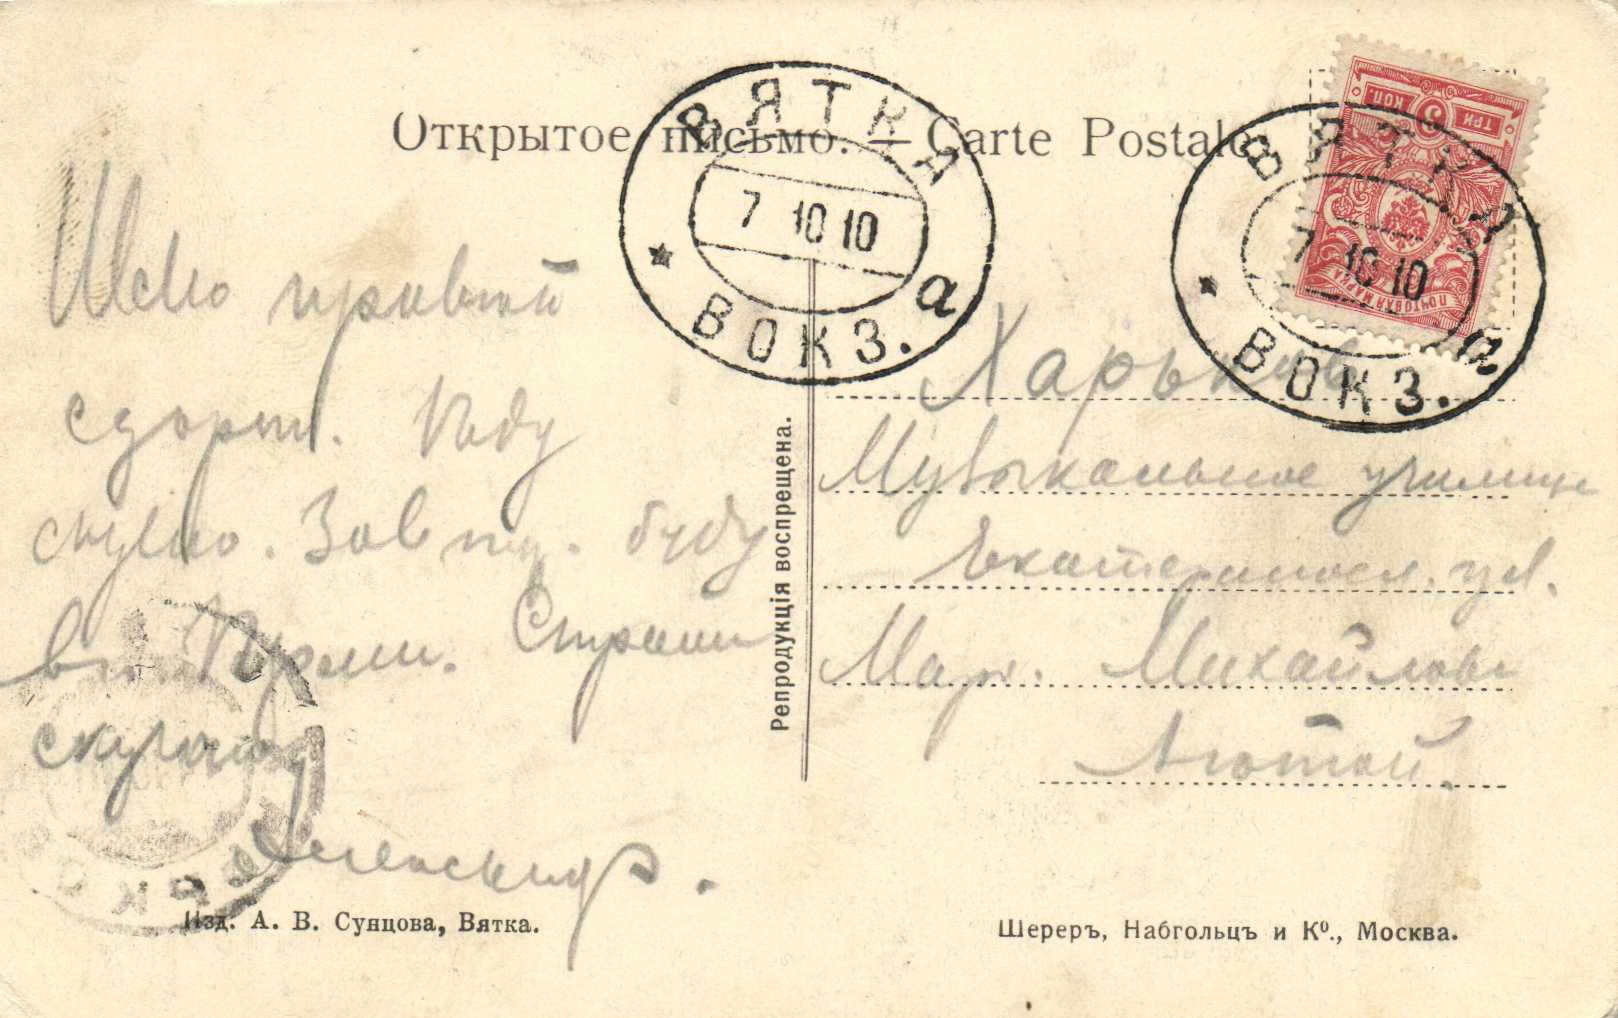 Открытое письмо. — Carte Postale
ВЯТКА
7 10 10
ВОКЗ. а
ВЯТКА
7 10 10
ВОКЗ. а
ТРИ 3 КОП.
ПОЧТОВАЯ МАРКА
Шлю привет
Еду
скучно. Завтра буду
в Перми. Страшно
скучаю
Александр.
Харьков
Музыкальное училище
Екатериносл. ул.
Мар. Михайловне
Лютой.
Репродукція воспрещена.
Изд. А. В. Сунцова, Вятка.
Шереръ, Набгольцъ и Кº., Москва.